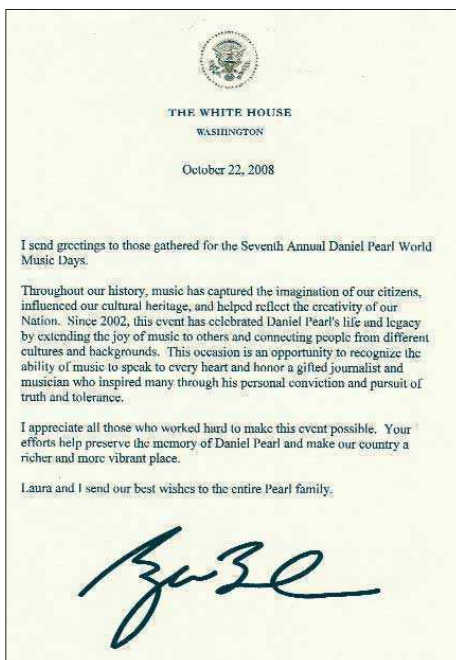 THE WHITE HOUSE
WASHINGTON
October 22, 2008
I send greetings to those gathered for the Seventh Annual Daniel Pearl World
Music Days.
Throughout our history, music has captured the imagination of our citizens,
influenced our cultural heritage, and helped reflect the creativity of our
Nation. Since 2002, this event has celebrated Daniel Pearl's life and legacy
by extending the joy of music to others and connecting people from different
cultures and backgrounds. This occasion is an opportunity to recognize the
ability of music to speak to every heart and honor a gifted journalist and
musician who inspired many through his personal conviction and pursuit of
truth and tolerance.
I appreciate all those who worked hard to make this event possible. Your
efforts help preserve the memory of Daniel Pearl and make our country a
richer and more vibrant place.
Laura and I send our best wishes to the entire Pearl family.